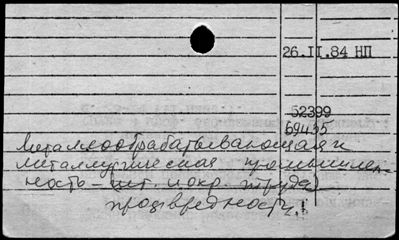 26.II.84 НП
52399
69435
Металлообрабатывающая и
металлургическая промышлен-
ность – гиг. и охр. труда
проф. вредности